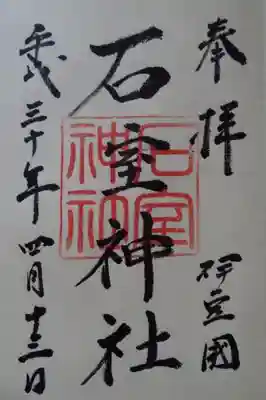 奉拝
伊豆國
石室神社
石室神社
平成三十年四月十三日